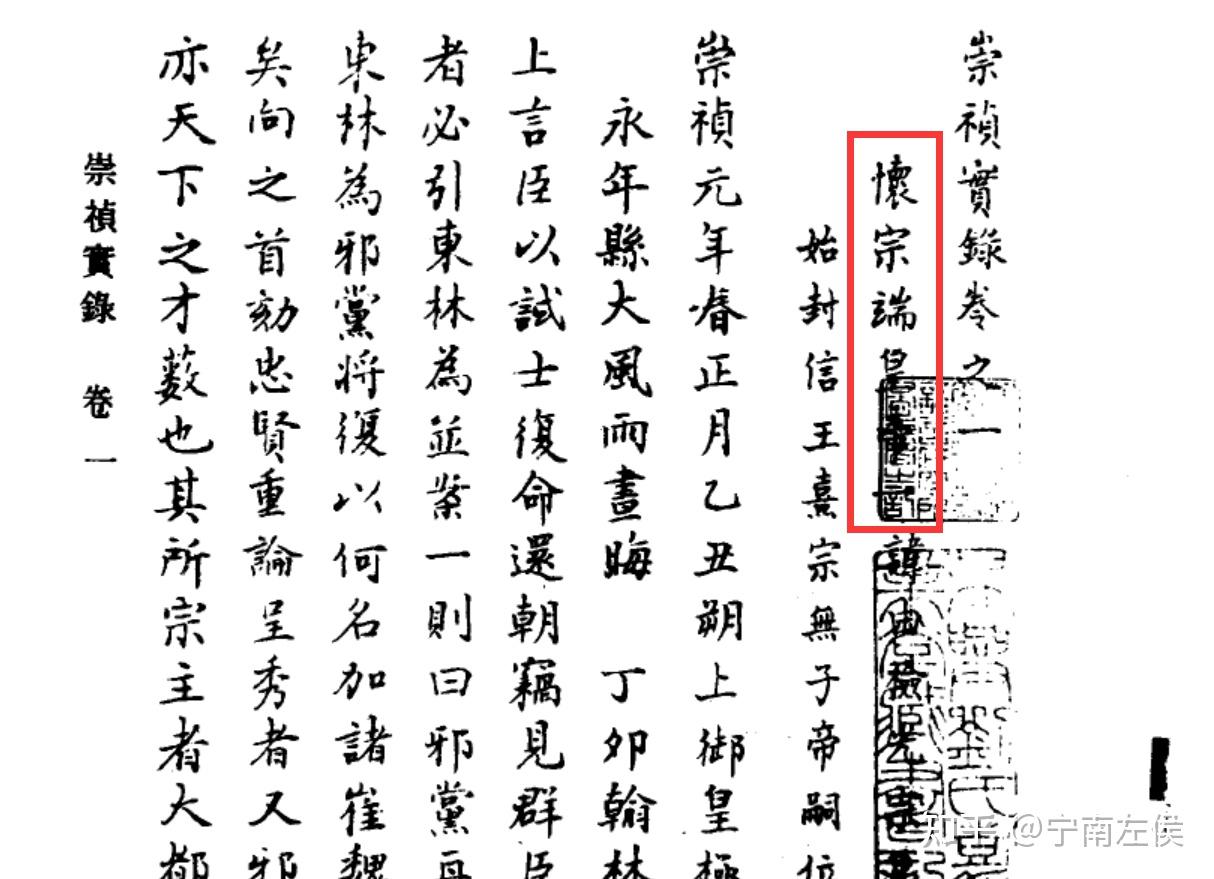 崇禎實錄卷之一
懷宗端皇帝 諱由檢光宗
始封信王熹宗無子帝嗣位
崇禎元年春正月乙丑朔上御皇極
永年縣大風雨晝晦 丁卯翰林
上言臣以試士復命還朝竊見群臣
者必引東林為並案一則曰邪黨再
東林為邪黨將復以何名加諸崔魏
矣向之首劾忠賢重論呈秀者又邪
亦天下之才藪也其所宗主者大都
崇禎實錄 卷一
知乎 @宁南左侯